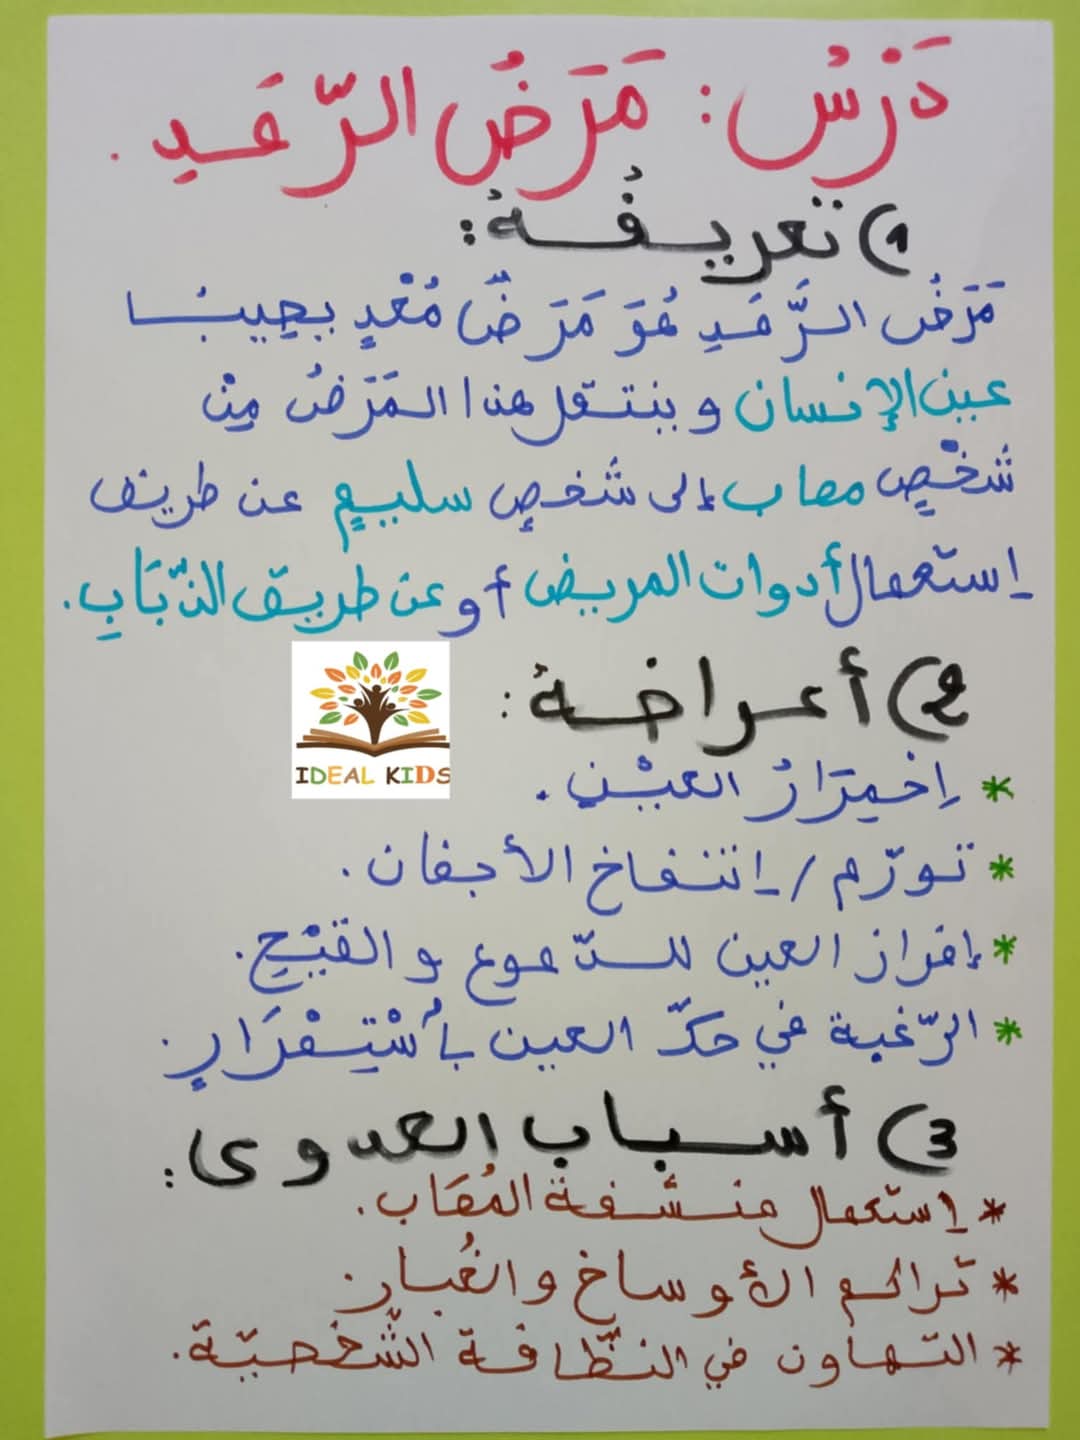 دَرْسُ: مَرَضُ الرَّمَدِ.
1) تعريفُهُ:
مَرَضُ الرَّمَدِ هُوَ مَرَضٌ مُعْدٍ يُصِيبُ
عين الإنسان وينتقل هذا المَرَضُ مِنْ
شَخْصٍ مصاب إلى شَخصٍ سليمٍ عن طريق
اِستعمال أدوات المريض أو عن طريق الذّبَابِ.
2) أعراضهُ:
IDEAL KIDS
* اِحْمِرَارُ العَيْنِ.
* تورّم / اِنتفاخ الأجفان.
* إفراز العين للدّموع والقَيْحِ.
* الرّغبة في حكّ العين بِاُسْتِمْرَارٍ.
3) أسباب العدوى:
* اِستعمال منشفة المُصَاب.
* تراكم الأوساخ والغُبار.
* التهاون في النّظافة الشّخصيّة.